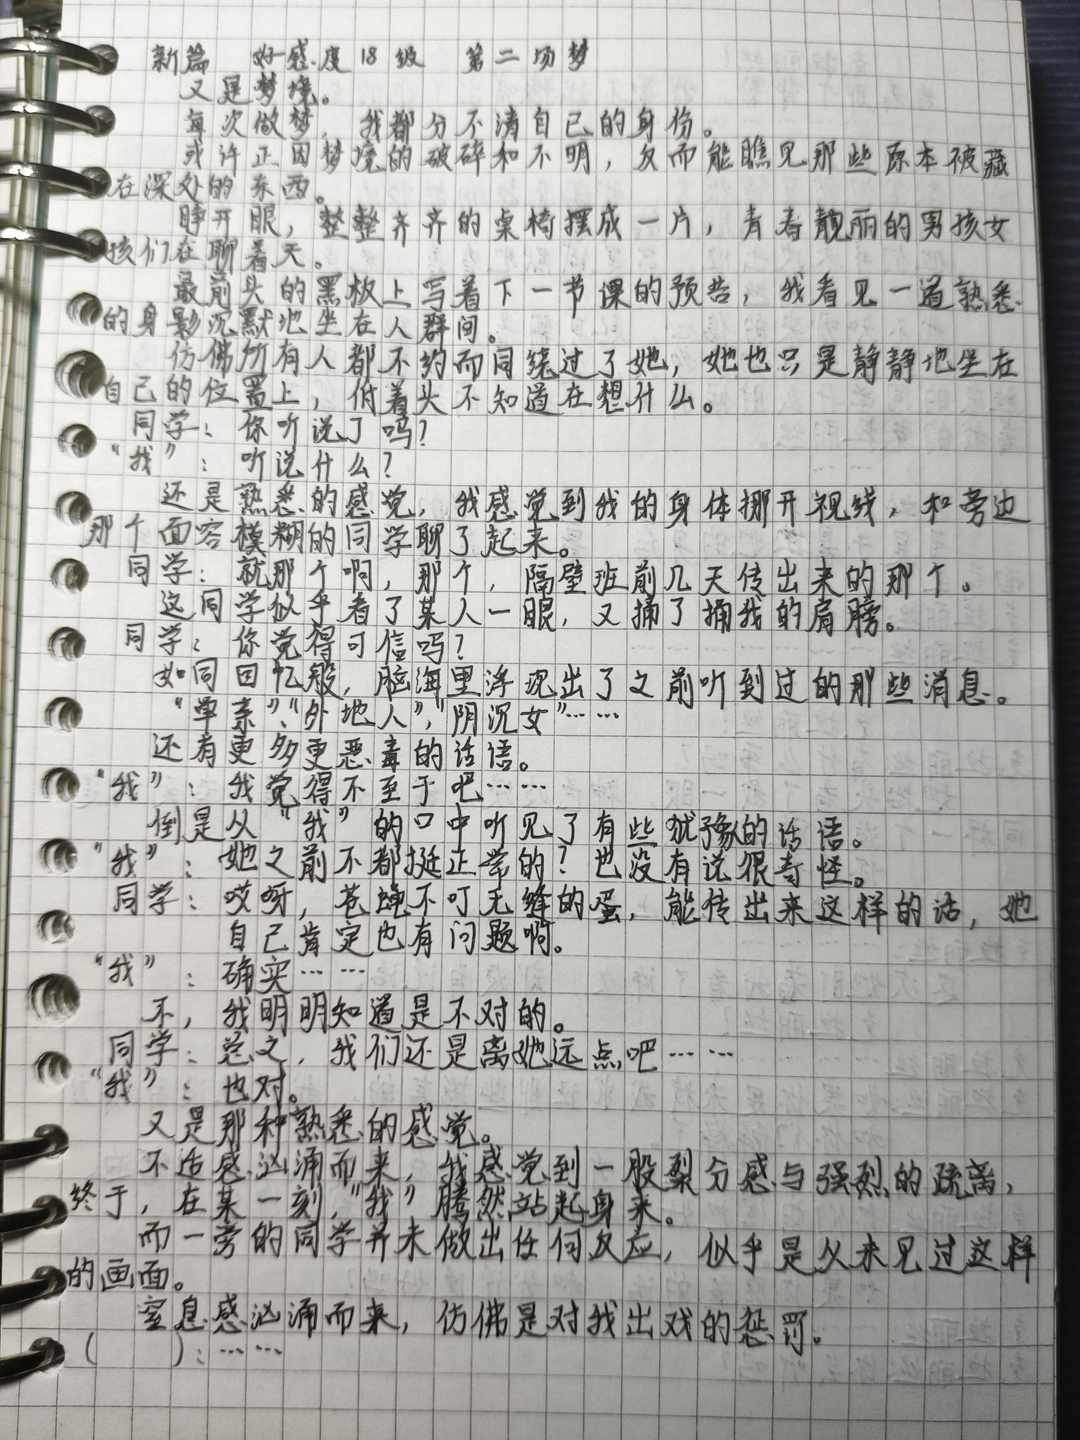 新篇 好感度18级 第二场梦
又是梦境。
每次做梦，我都分不清自己的身份。
或许正因梦境的破碎和不明，反而能瞧见那些原本被藏
在深处的东西。
睁开眼，整整齐齐的桌椅摆成一片，青春靓丽的男孩女
孩们在聊着天。
最前头的黑板上写着下一节课的预告，我看见一道熟悉
的身影沉默地坐在人群间。
仿佛所有人都不约而同绕过了她，她也只是静静地坐在
自己的位置上，低着头不知道在想什么。
同学：你听说了吗？
“我”：听说什么？
还是熟悉的感觉，我感觉到我的身体挪开视线，和旁边
那个面容模糊的同学聊了起来。
同学：就那个啊，那个，隔壁班前几天传出来的那个。
这同学似乎看了某人一眼，又捅了捅我的肩膀。
同学：你觉得可信吗？
如同回忆般，脑海里浮现出了之前听到过的那些消息。
“单亲”、“外地人”、“阴沉女”……
还有更多更恶毒的话语。
“我”：我觉得不至于吧……
倒是从“我”的口中听见了有些犹豫的话语。
“我”：她之前不都挺正常的？也没有说很奇怪。
同学：哎呀，苍蝇不叮无缝的蛋，能传出来这样的话，她
自己肯定也有问题啊。
“我”：确实……
不，我明明知道是不对的。
同学：总之，我们还是离她远点吧……
“我”：也对。
又是那种熟悉的感觉。
不适感汹涌而来，我感觉到一股裂分感与强烈的疏离，
终于，在某一刻，“我”腾然站起身来。
而一旁的同学并未做出任何反应，似乎是从未见过这样
的画面。
窒息感汹涌而来，仿佛是对我出戏的惩罚。
（　　）：……